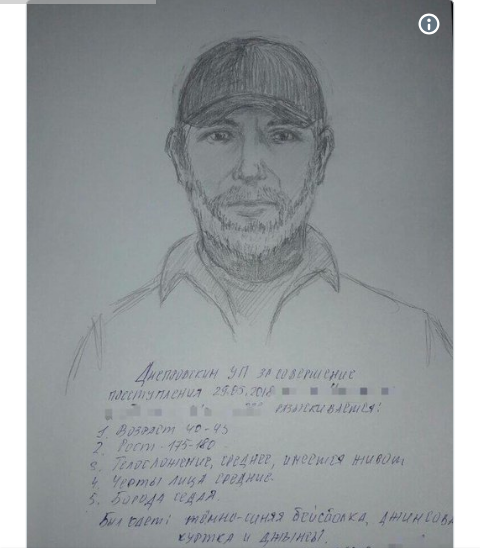 Днепровским УП за совершение
преступления 29.05.2018
разыскивается:
1. Возраст 40-45
2. Рост - 175-180
3. Телосложение, среднее, имеется живот
4. Черты лица средние.
5. Борода седая
Был одет: тёмно-синяя бейсболка, джинсова
куртка и джинсы.